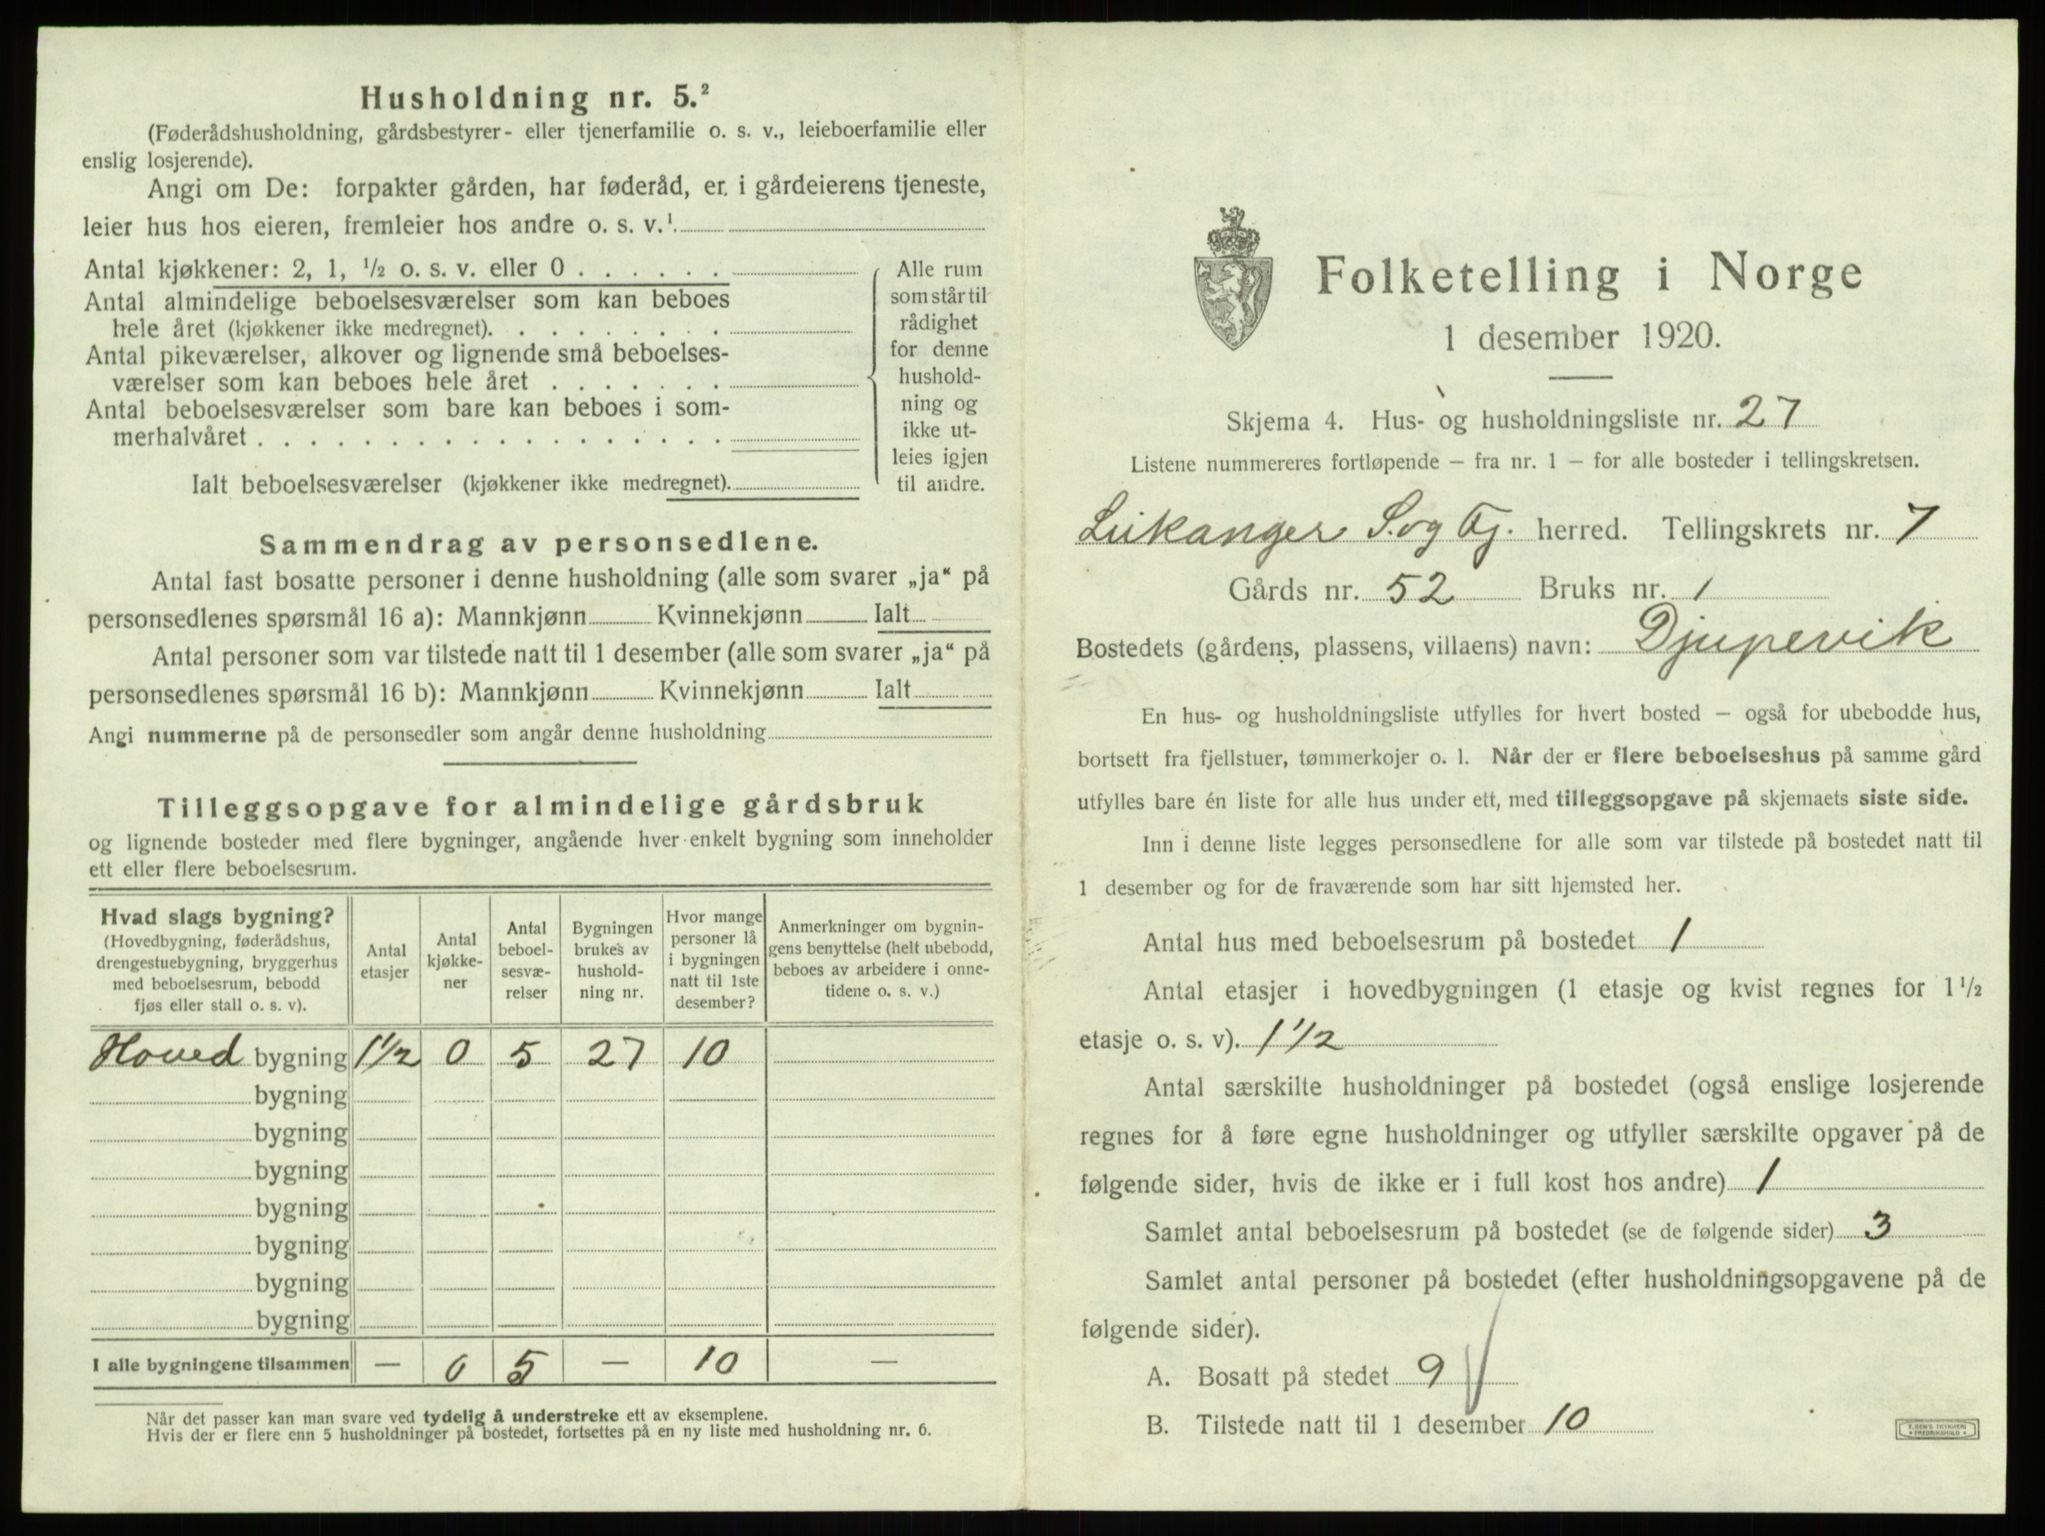 Husholdning nr. 5.²
(Føderådshusholdning, gårdsbestyrer- eller tjenerfamilie o. s. v., leieboerfamilie eller
enslig losjerende).
Angi om De: forpakter gården, har føderåd, er i gårdeierens tjeneste,
leier hus hos eieren, fremleier hos andre o. s. v.¹
Antal kjøkkener: 2, 1, ½ o. s. v. eller 0 . . . . . .
Antal almindelige beboelsesværelser som kan beboes
hele året (kjøkkener ikke medregnet). . . . . . . . .
Antal pikeværelser, alkover og lignende små beboelses-
værelser som kan beboes hele året . . . . . . .
Antal beboelsesværelser som bare kan beboes i som-
merhalvåret . . . . . . . . . . . . . . . . . .
Ialt beboelsesværelser (kjøkkener ikke medregnet).
Alle rum
som står til
rådighet
for denne
hushold-
ning og
ikke ut-
leies igjen
til andre.
Sammendrag av personsedlene.
Antal fast bosatte personer i denne husholdning (alle som svarer „ja“ på
personsedlenes spørsmål 16 a): Mannkjønn Kvinnekjønn Ialt
Antal personer som var tilstede natt til 1 desember (alle som svarer „ja“ på
personsedlenes spørsmål 16 b): Mannkjønn Kvinnekjønn Ialt
Angi nummerne på de personsedler som angår denne husholdning
Tilleggsopgave for almindelige gårdsbruk
og lignende bosteder med flere bygninger, angående hver enkelt bygning som inneholder
ett eller flere beboelsesrum.
Hvad slags bygning?
(Hovedbygning, føderådshus,
drengestuebygning, bryggerhus
med beboelsesrum, bebodd
fjøs eller stall o. s. v).
Antal
etasjer
Antal
kjøkke-
ner
Antal
beboel-
sesvæ-
relser
Bygningen
brukes av
hushold-
ning nr.
Hvor mange
personer lå
i bygningen
natt til 1ste
desember?
Anmerkninger om bygnin-
gens benyttelse (helt ubebodd,
beboes av arbeidere i onne-
tidene o. s. v.)
Hoved bygning 1½ 0 5 27 10
bygning
bygning
bygning
bygning
bygning
bygning
bygning
I alle bygningene tilsammen — 0 5 — 10 —
Når det passer kan man svare ved tydelig å understreke ett av eksemplene.
Hvis der er flere enn 5 husholdninger på bostedet, fortsettes på en ny liste med husholdning nr. 6.
Folketelling i Norge
1 desember 1920.
Skjema 4. Hus- og husholdningsliste nr. 27
Listene nummereres fortløpende – fra nr. 1 – for alle bosteder i tellingskretsen.
Leikanger S. og Fj. herred. Tellingskrets nr. 7
Gårds nr. 52 Bruks nr. 1
Bostedets (gårdens, plassens, villaens) navn: Djupevik
En hus- og husholdningsliste utfylles for hvert bosted – også for ubebodde hus,
bortsett fra fjellstuer, tømmerkojer o. l. Når der er flere beboelseshus på samme gård
utfylles bare én liste for alle hus under ett, med tilleggsopgave på skjemaets siste side.
Inn i denne liste legges personsedlene for alle som var tilstede på bostedet natt til
1 desember og for de fraværende som har sitt hjemsted her.
Antal hus med beboelsesrum på bostedet 1
Antal etasjer i hovedbygningen (1 etasje og kvist regnes for 1½
etasje o. s. v). 1½
Antal særskilte husholdninger på bostedet (også enslige losjerende
regnes for å føre egne husholdninger og utfyller særskilte opgaver på de
følgende sider, hvis de ikke er i full kost hos andre) 1
Samlet antal beboelsesrum på bostedet (se de følgende sider) 3
Samlet antal personer på bostedet (efter husholdningsopgavene på de
følgende sider).
A. Bosatt på stedet 9
B. Tilstede natt til 1 desember 10